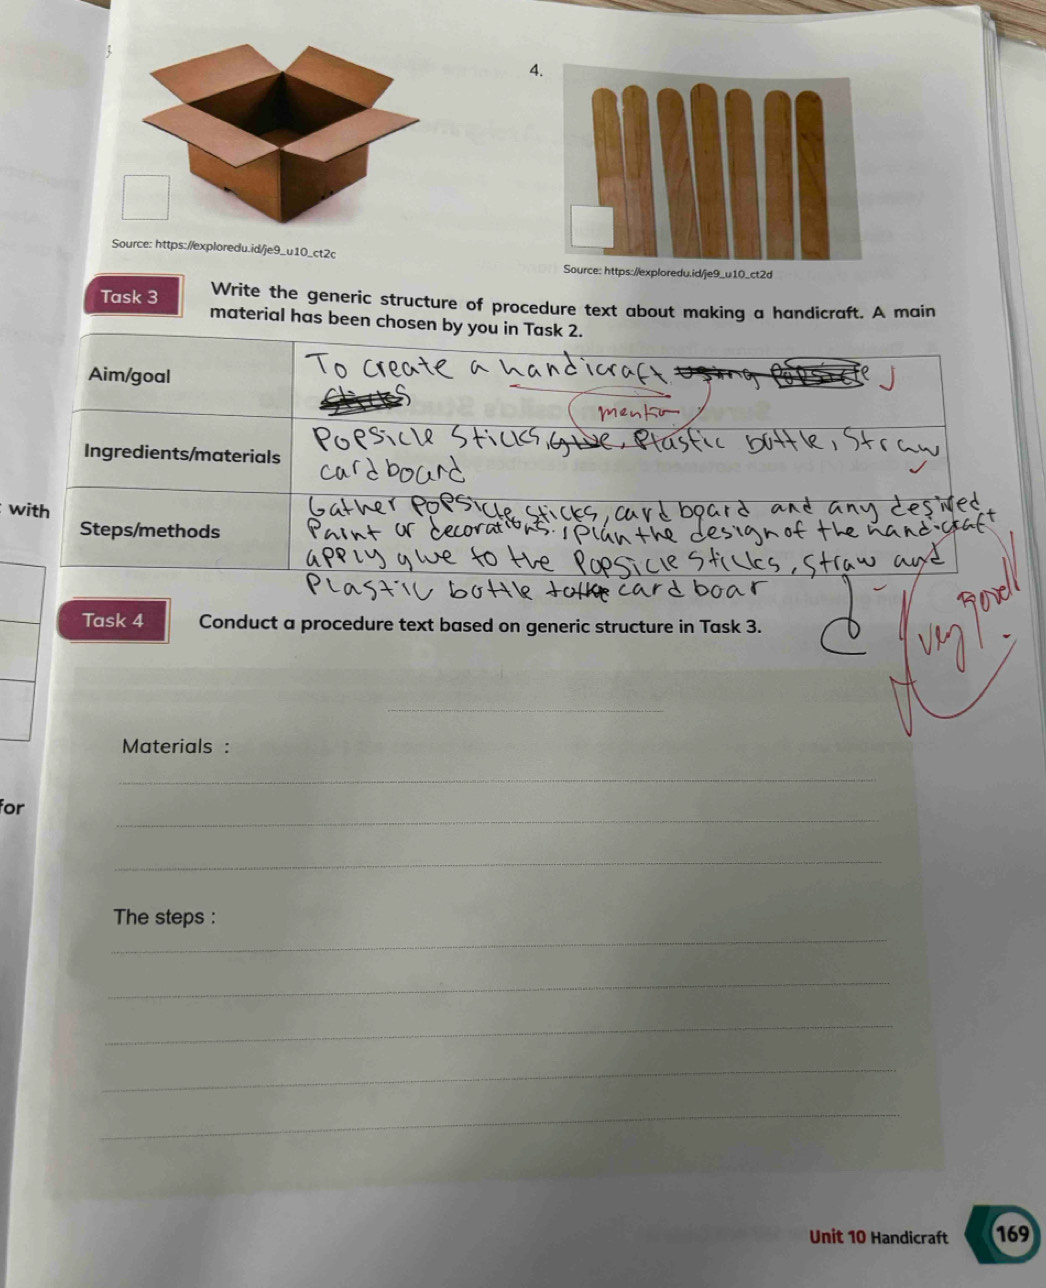 4.
Source: https://exploredu.id/je9_u10_ct2c
Source: https://exploredu.id/je9_u10_ct2d
Task 3
Write the generic structure of procedure text about making a handicraft. A main
material has been chosen by you in Task 2.
Aim/goal
To create a handicraft using Popsicle
sticks
mention
Ingredients/materials
Popsicle sticks, glue, Plastic bottle, Straw
cardboard
with
Steps/methods
Gather Popsicle sticks, cardboard and any desired
Paint or decorations. Plan the design of the handicraft
apply glue to the Popsicle sticks, straw and
Plastic bottle to the cardboar
very good!
Task 4
Conduct a procedure text based on generic structure in Task 3.
Materials :
for
The steps :
Unit 10 Handicraft
169